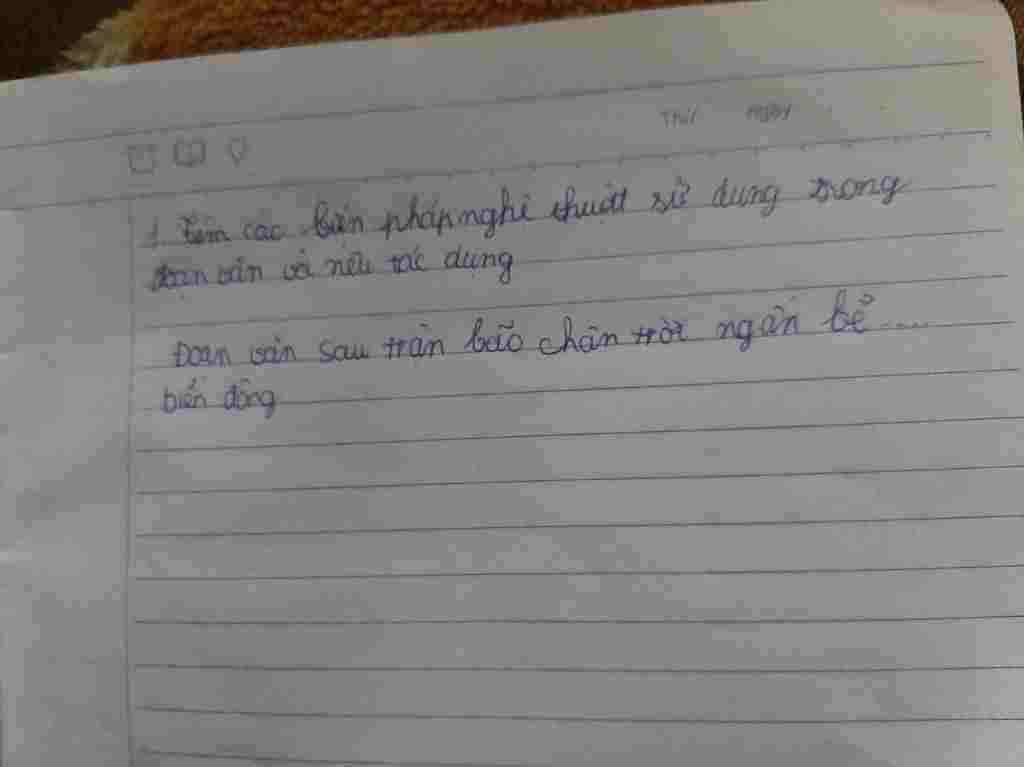 Thứ Ngày
1. tìm các biện pháp nghệ thuật sử dụng trong
đoạn văn và nêu tác dụng
Đoạn văn sau trận bão chân trời ngấn bể ....
biển đông